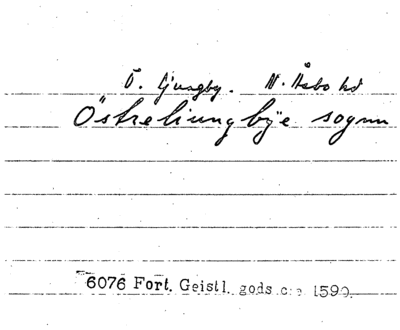 Ö. Ljungby. N. Åsbo hd
Östreliungbÿe sognn
6076 Fort. Geistl. gods c:a 1590.